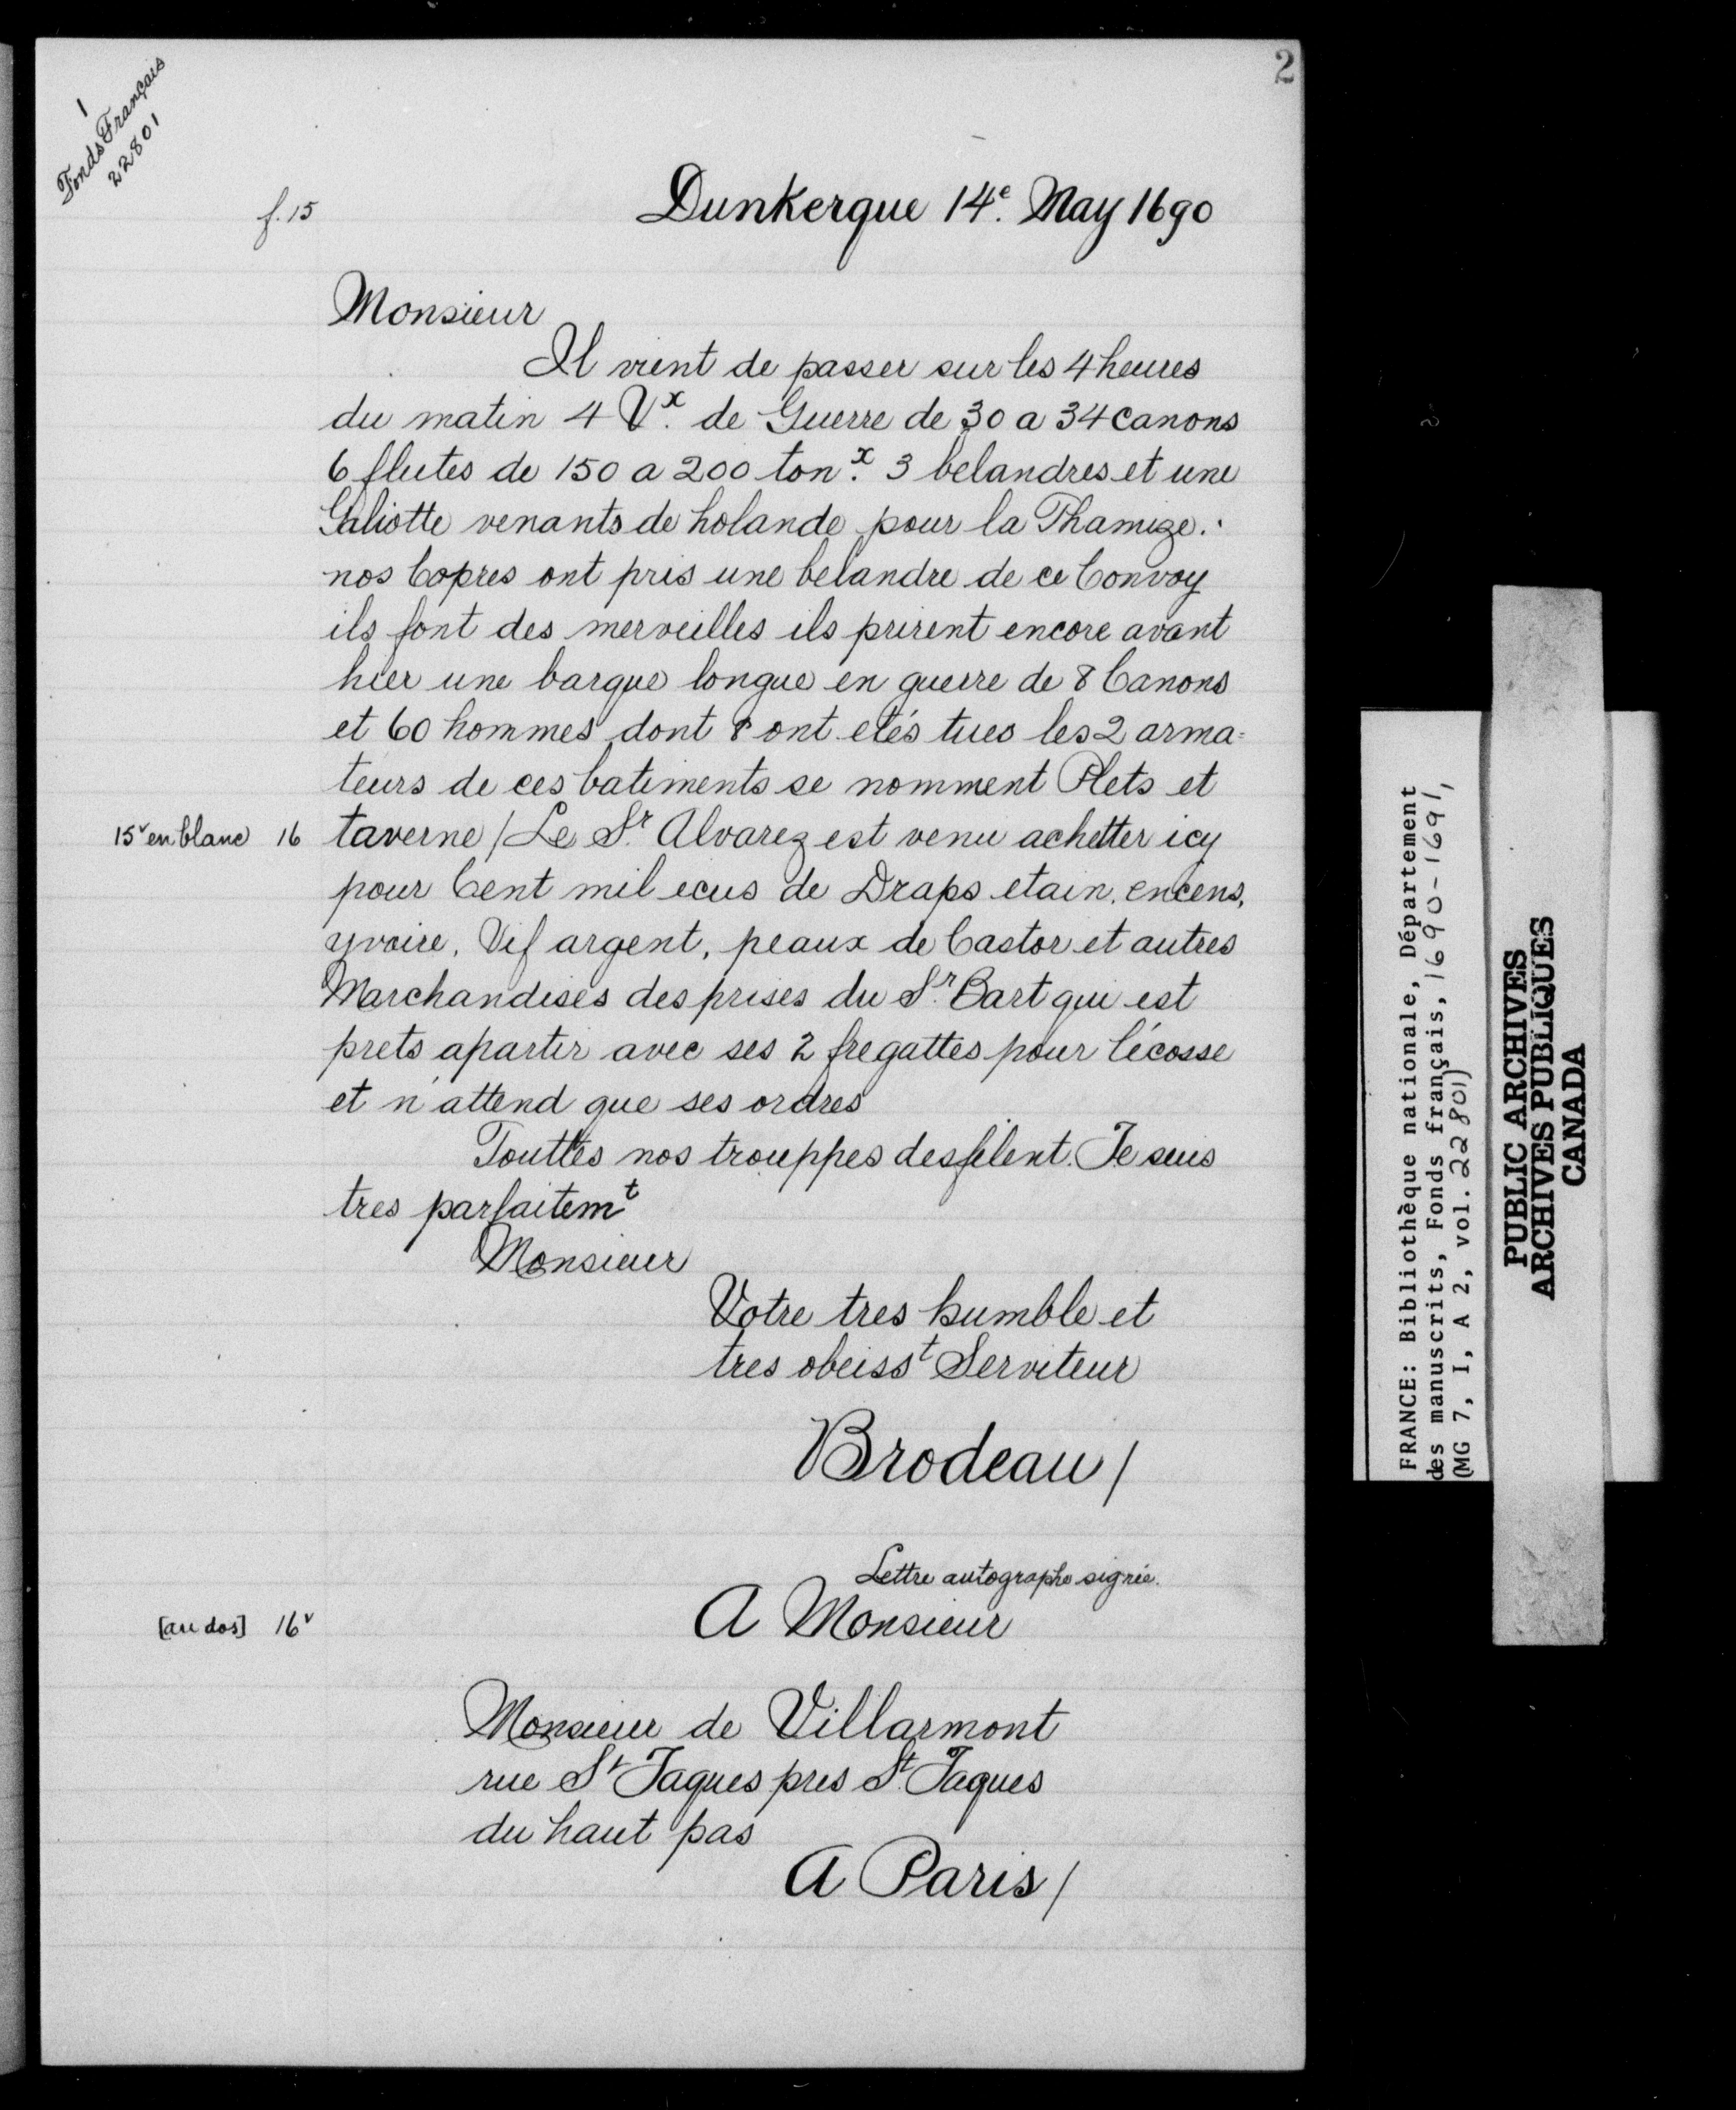 2
1
Fonds Français
22801
f. 15
Dunkerque 14e. May 1690
Monsieur
Il vient de passer sur les 4 heures
du matin 4 Vx. de Guerre de 30 a 34 canons
6 flutes de 150 a 200 tonx. 3 belandres et une
Galiotte venants de holande pour la Thamize.
nos Capres ont pris une belandre de ce Convoy
ils font des merveilles ils prirent encore avant
hier une barque longue en guerre de 8 Canons
et 60 hommes dont 8 ont etés tues les 2 arma=
teurs de ces batiments se nomment Plets et
15v en blanc 16 taverne / Le Sr. Alvarez est venu achetter icy
pour Cent mil ecus de Draps etain, encens,
yvoire, Vif argent, peaux de Castor et autres
Marchandises des prises du Sr. Bart qui est
prets apartir avec ses 2 fregattes pour l'écosse
et n'attend que ses ordres
Touttes nos trouppes desfilent. Je suis
tres parfaitemt
Monsieur
Votre tres humble et
tres obeisst Serviteur
Brodeau /
Lettre autographe signée.
[au dos] 16v A Monsieur
Monsieur de Villarmont
rue St Jaques pres St. Jaques
du haut pas
A Paris /
FRANCE: Bibliothèque nationale, Département
des manuscrits, Fonds français, 1690-1691,
(MG 7, I, A 2, vol. 22801)
PUBLIC ARCHIVES
ARCHIVES PUBLIQUES
CANADA